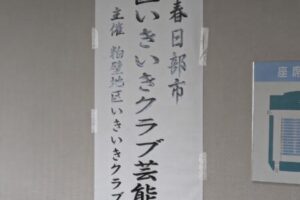 春日部市
区いきいきクラブ芸能
主催 粕壁地区いきいきクラブ
座席